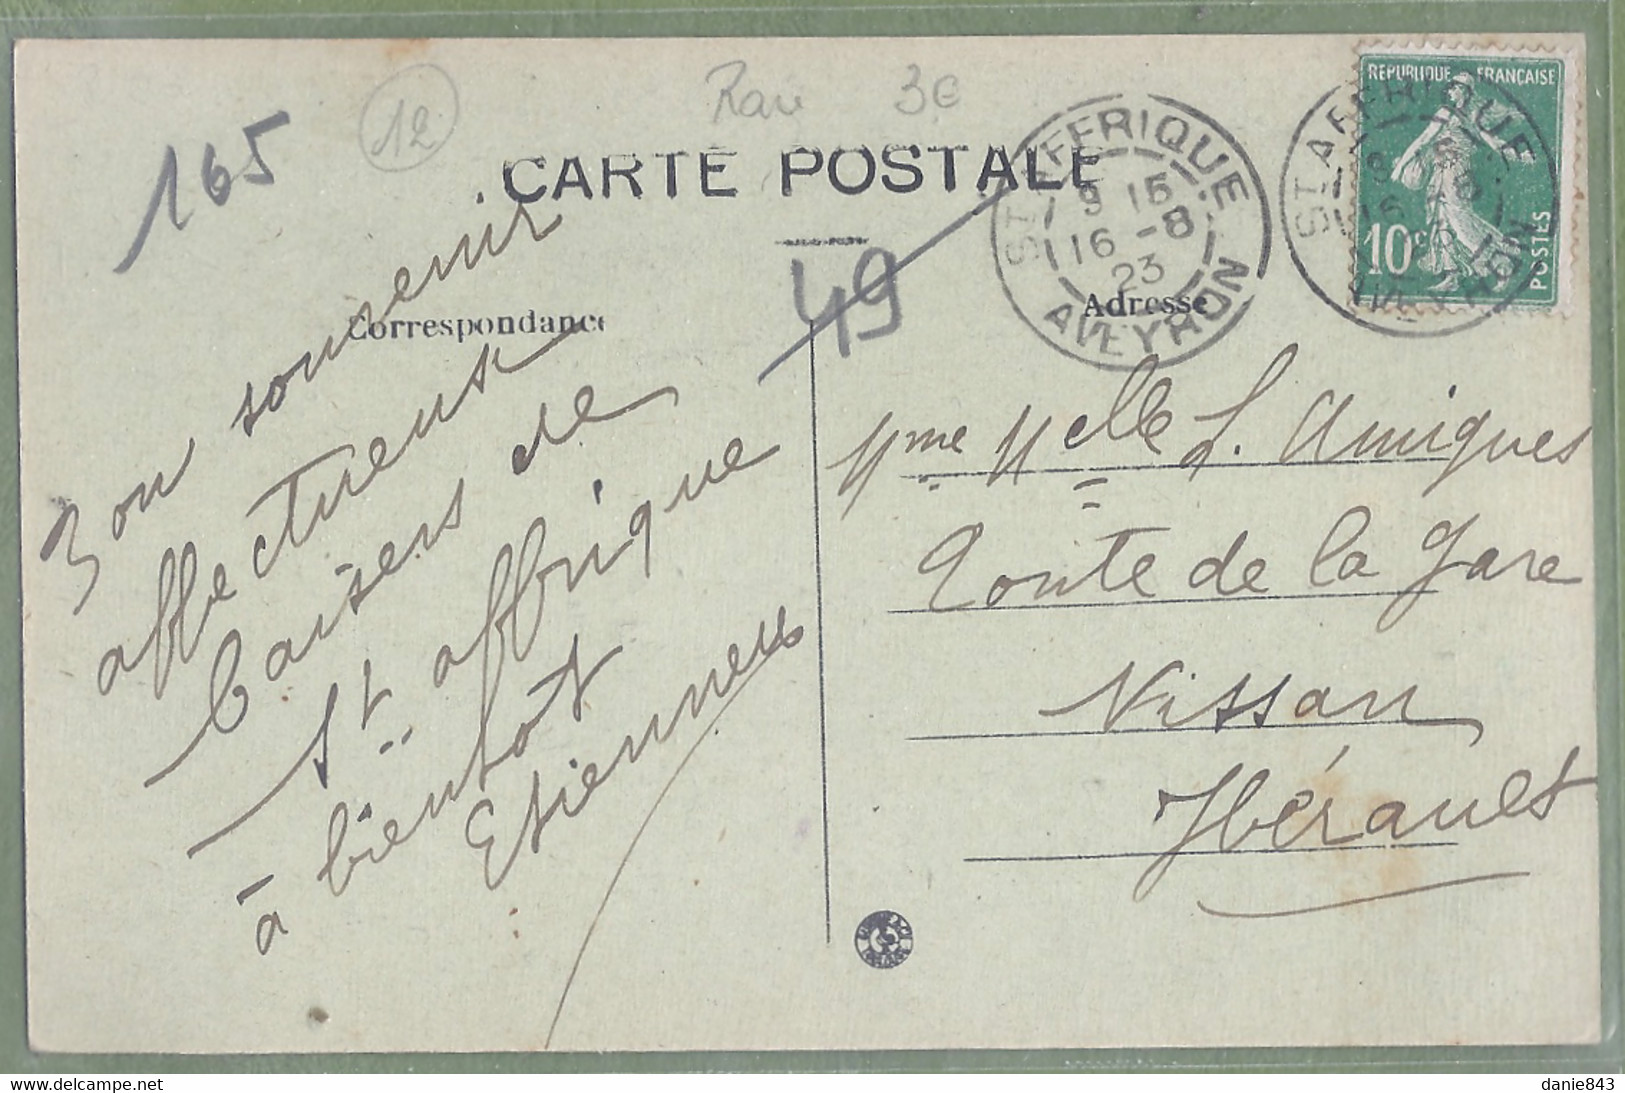 165
12
Rare 3e
CARTE POSTALE
49
Correspondance
Adresse
ST AFFRIQUE
9 15
16 - 8
23
AVEYRON
ST AFFRIQUE
AVEYRON
REPUBLIQUE FRANÇAISE
10c
POSTES
Bon souvenir
affectueux
baisers de
St. affrique
à bientôt
Etiennette
Mme Melle L. Amigues
Route de la Gare
Nissan
Hérault
danie843